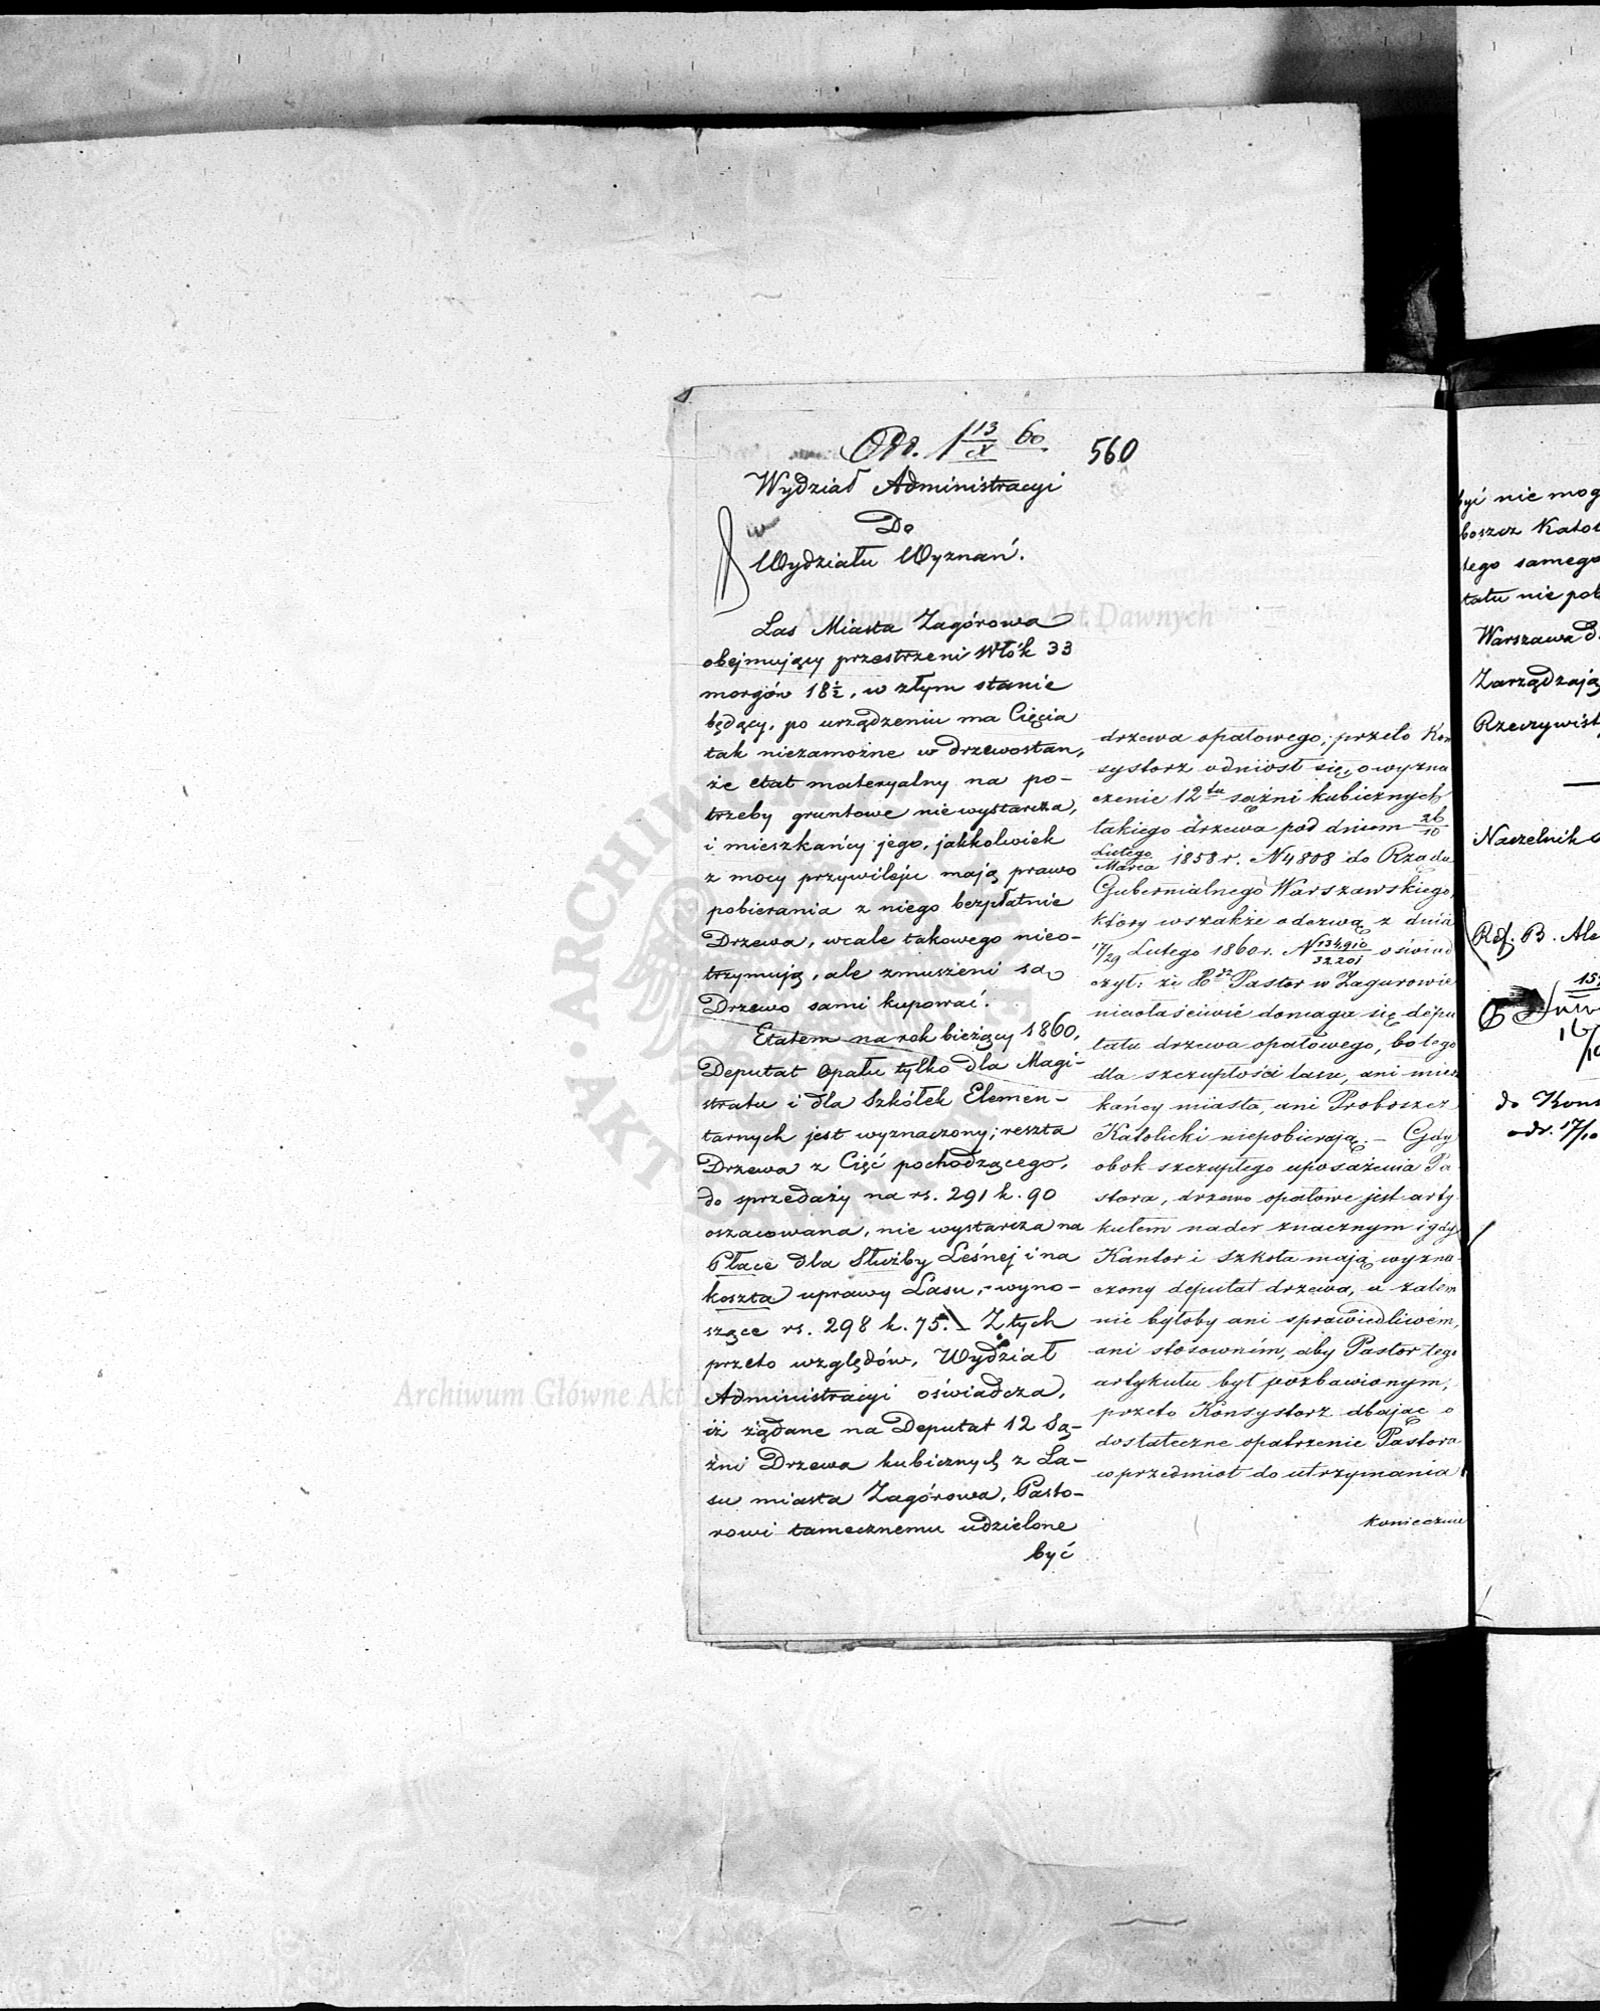 Odd. 1 13/X 60
560
Wydział Administracyi
w
Do
Wydziału Wyznań.
Las Miasta Zagórowa
obejmujący przestrzeni Włók 33
morgów 18½, w złym stanie
będący, po urządzeniu ma Cięcia
tak niezamożne w drzewostan,
że etat materyalny na po-
trzeby gruntowe niewystarcza,
i mieszkańcy jego, jakkolwiek
z mocy przywileju mają prawo
pobierania z niego bezpłatnie
Drzewa, wcale takowego nieo-
trzymują, ale zmuszeni są
Drzewo sami kupować.
Etatem na rok bieżący 1860,
Deputat Opału tylko dla Magi-
stratu i dla Szkółek Elemen-
tarnych jest wyznaczony; reszta
Drzewa z Cięć pochodzącego,
do sprzedaży na rs. 291 k. 90
oszacowana, nie wystarcza na
Płace dla Służby Leśnej i na
koszta uprawy Lasu, wyno-
szące rs. 298 k. 75. Z tych
przeto względów, Wydział
Administracyi oświadcza,
iż żądane na Deputat 12 Są-
żni Drzewa kubicznych z La-
su miasta Zagórowa, Pasto-
rowi tamecznemu udzielone
być
drzewa opałowego; przeto Kon
systorz odniósł się, o wyzna
czenie 12tu sążni kubicznych
takiego drzewa pod dniem 26/10
Lutego/Marca 1858 r. N 4808 do Rządu
Gubernialnego Warszawskiego,
który wszakże odezwą z dnia
17/29 Lutego 1860 r. N 134,910/32201 oświad
czył: że Pastor w Zagurowie
niewłaściwie domaga się depu
tatu drzewa opałowego, bo tego
dla szczupłości lasu, ani miesz
kańcy miasta, ani Proboszcz
Katolicki niepobierają. – Gdy
obok szczupłego uposażenia Pa
stora, drzewo opałowe jest arty
kułem nader znacznym i gdy
Kantor i Szkoła mają wyzna
czony deputat drzewa, a zatem
nie byłoby ani sprawiedliwém,
ani stosowném, aby Pastor tego
artykułu był pozbawionym,
przeto Konsystorz dbając o
dostateczne opatrzenie Pastora
w przedmiot do utrzymania
koniecznie
być nie mog
boszcz Katol
tego samego
tatu nie pob
Warszawa d.
Zarządzają
Rzeczywist
Naczelnik
Ref. B. Ale
15
16/10
do Kons
odr. 17/10
Archiwum Główne Akt Dawnych
Archiwum Główne Akt Dawnych